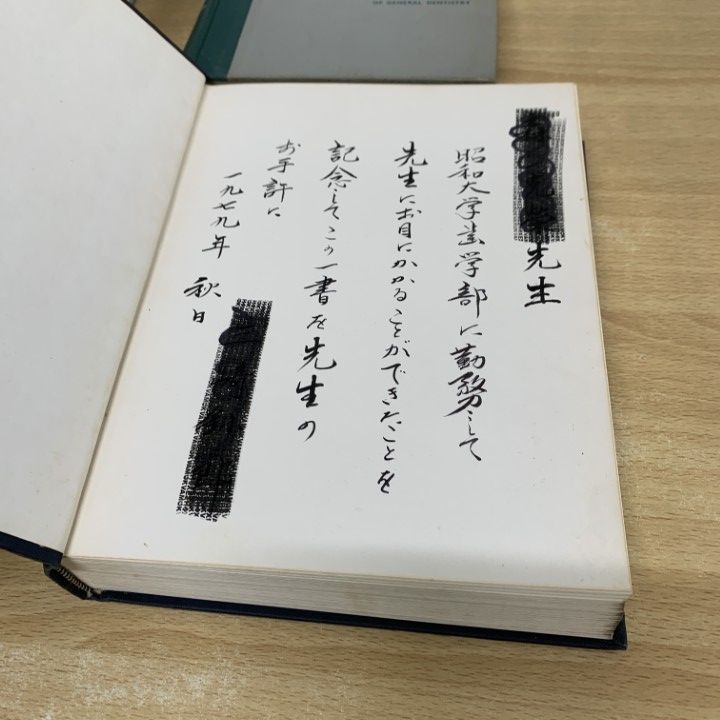 OF GENERAL DENTISTRY
先生
昭和大学歯学部に勤務して
先生にお目にかかることができたことを
記念してこの一書を先生の
お手許に
一九七九年 秋日